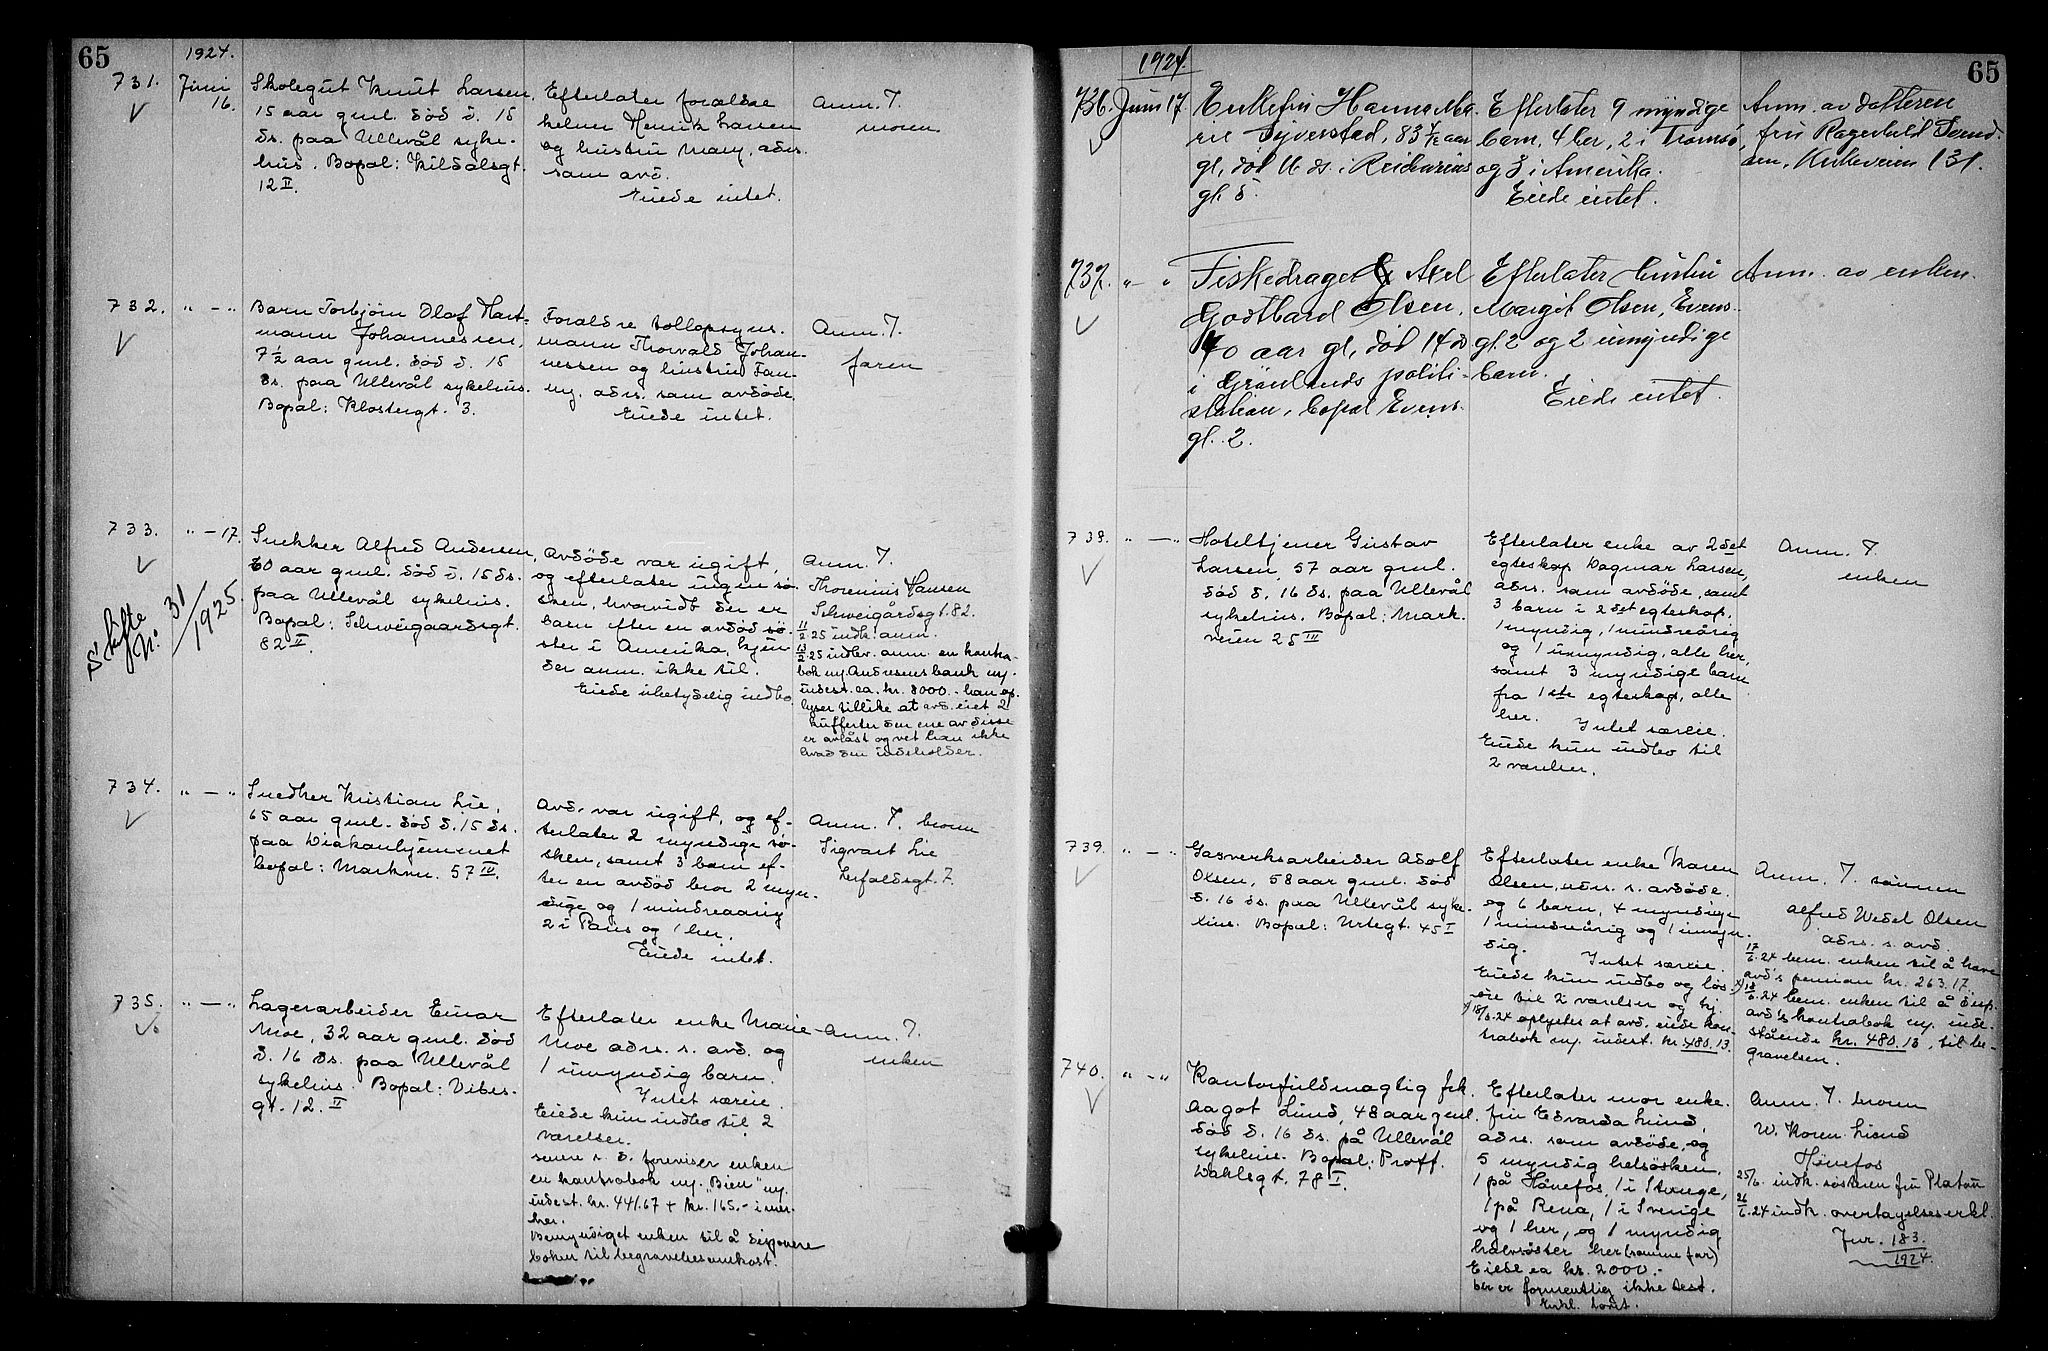 65
1924.
731. Juni 16.
Skolegut Knut Larsen,
15 aar gml. død d. 15
ds. paa Ullevål syke-
hus. Bopæl:
12 II.
Efterlater forældre
kelner Henrik Larsen
og hustru Mary, adrs.
som avd.
Eiede intet.
Anm. T.
moren
732. " — "
Barn Torbjörn Olaf Hart-
mann Johannessen,
7 ½ aar gml. død d. 15
ds. paa Ullevål sykehus.
Bopæl: Klostergt. 3.
Forældre tollopsyns-
mann Thorvald Johan-
nessen og hustru Fan-
ny, adrs. som avdöde.
Eiede intet.
Anm. T.
faren
733. " — 17.
Skifte Nr. 31/1925.
Snekker Alfred Andersen,
60 aar gml. død d. 15 ds.
paa Ullevål sykehus.
Bopæl: Schweigaardsgt.
82 II.
Avdöde var ugift,
og efterlater ingen sø-
sken, hvorvidt der er
barn efter en avdød sø-
ster i Amerika, kjen-
der anm. ikke til.
Eiede ubetydelig indbo.
Anm. T.
Thorenius Hansen
Schweigårdsgt. 82.
11/2.25 indk. anm.
13/2.25 indlev. anm. en kontra-
bok m/ Andresens bank m/
indest. ca. kr. 8000.- han op-
lyser tillike at avd. eiet 2
kufferter den ene av disse
er avlåst og vet han ikke
hvad den indeholder.
734. " — "
Snedker Kristian Lie,
65 aar gml. död d. 15 ds.
paa Diakonhjemmet
bopæl: Markvn. 57 IV.
Avd. var ugift, og ef-
terlater 2 myndige sø-
sken, samt 3 barn ef-
ter en avdød bror 2 myn-
dige og 1 mindreaarig
2 i Paris og 1 her.
Eiede intet.
Anm. T. broren
Sigvart Lie
Lerfaldsgt. 7.
735. " — "
Lagerarbeider Einar
Moe, 32 aar gml. död
d. 16 ds. paa Ullevål
sykehus. Bopæl: Vibes-
gt. 12. II
Efterlater enke Marie
Moe adrs. s. avd. og
1 umyndig barn.
Intet særeie.
Eiede kun indbo til 2
værelser.
senere s. d. foreviser enken
en kontrabok m/ "Bien" m/
indest. kr. 441.67 + kr. 165.-
her.
Bemyndiget enken til å disponere
boken til begravelsesomkost.
Anm. T.
enken
65
1924.
736. Juni 17.
Enkefru Hanna Ma-
rie Tyverstad, 83 ½ aar
gl, död 16 ds. i
gt. 5.
Efterlater 9 myndige
barn, 4 her, 2 i Tromsö
og 3 i Amerika.
Eiede intet.
Anm. av datteren
fru Ragnhild Svend-
sen, Kirkeveien 131.
737. " — "
Fiskedrager Axel
Godthard Olsen,
40 aar gl, död 14 ds
i Grönlands politi-
station, bopæl Evens-
gt. 2.
Efterlater hustru
Margit Olsen, Evens-
gt. 2 og 2 umyndige
barn.
Eiede intet.
Anm. av enken.
738. " — "
Hoteltjener Gustav
Larsen, 57 aar gml.
död d. 16 ds. paa Ullevål
sykehus. Bopæl: Mark-
veien 25 III
Efterlater enke av 2det
egteskap Dagmar Larsen,
adrs. som avdöde, samt
3 barn i 2det egteskap,
1 myndig, 1 mindreårig
og 1 umyndig, alle her,
samt 3 myndige barn
fra 1ste egteskap, alle
her. Intet særeie.
Eiede kun indbo til
2 værelser.
Anm. T.
enken
739. " — "
Gasverksarbeider Adolf
Olsen, 58 aar gml. död
d. 16 ds. paa Ullevål syke-
hus. Bopæl: Urtegt. 45 I
Efterlater enke Karen
Olsen, adrs. s. avdøde.
og 6 barn, 4 myndige
1 mindreårig og 1 umyn-
dig. Intet særeie.
Eiede kun indbo og løs-
øre til 2 værelser og kj.
x) 18/6.24 oplystes at avd. eiede kon-
trabok m/ indest. kr. 480.13.
Anm. T. sønnen
Alfred Wedel Olsen
adrs. s. avd.
17/6.24 bem. enken til å heve
avd's pension kr. 263.17.
x) 18/6.24 bem. enken til å disp.
avd's kontrabok m/ inde-
stående kr. 480.13, til be-
gravelsen.
740. " — "
Kontorfuldmægtig frk.
Aagot Lund, 48 aar gml.
död d. 16 ds. på Ullevål
sykehus. Bopæl: Proff.
Dahlsgt. 78 I.
Efterlater mor enke-
fru Edvarda Lund,
adrs. som avdöde, og
5 myndig helsösken,
1 på Hönefos, 1 i Stange,
1 på Rena, 1 i Sverige
og 1 her, og 1 myndig
halvsöster her (samme far)
Eiede ca kr. 2000.-
der er formentlig ikke test.
Anm. T. broren
W. Koren Lund
Hönefos
25/6. indk. søsteren fru Platou
26/6.24 indk. overtagelseserkl.
Jnr. 183/1924.